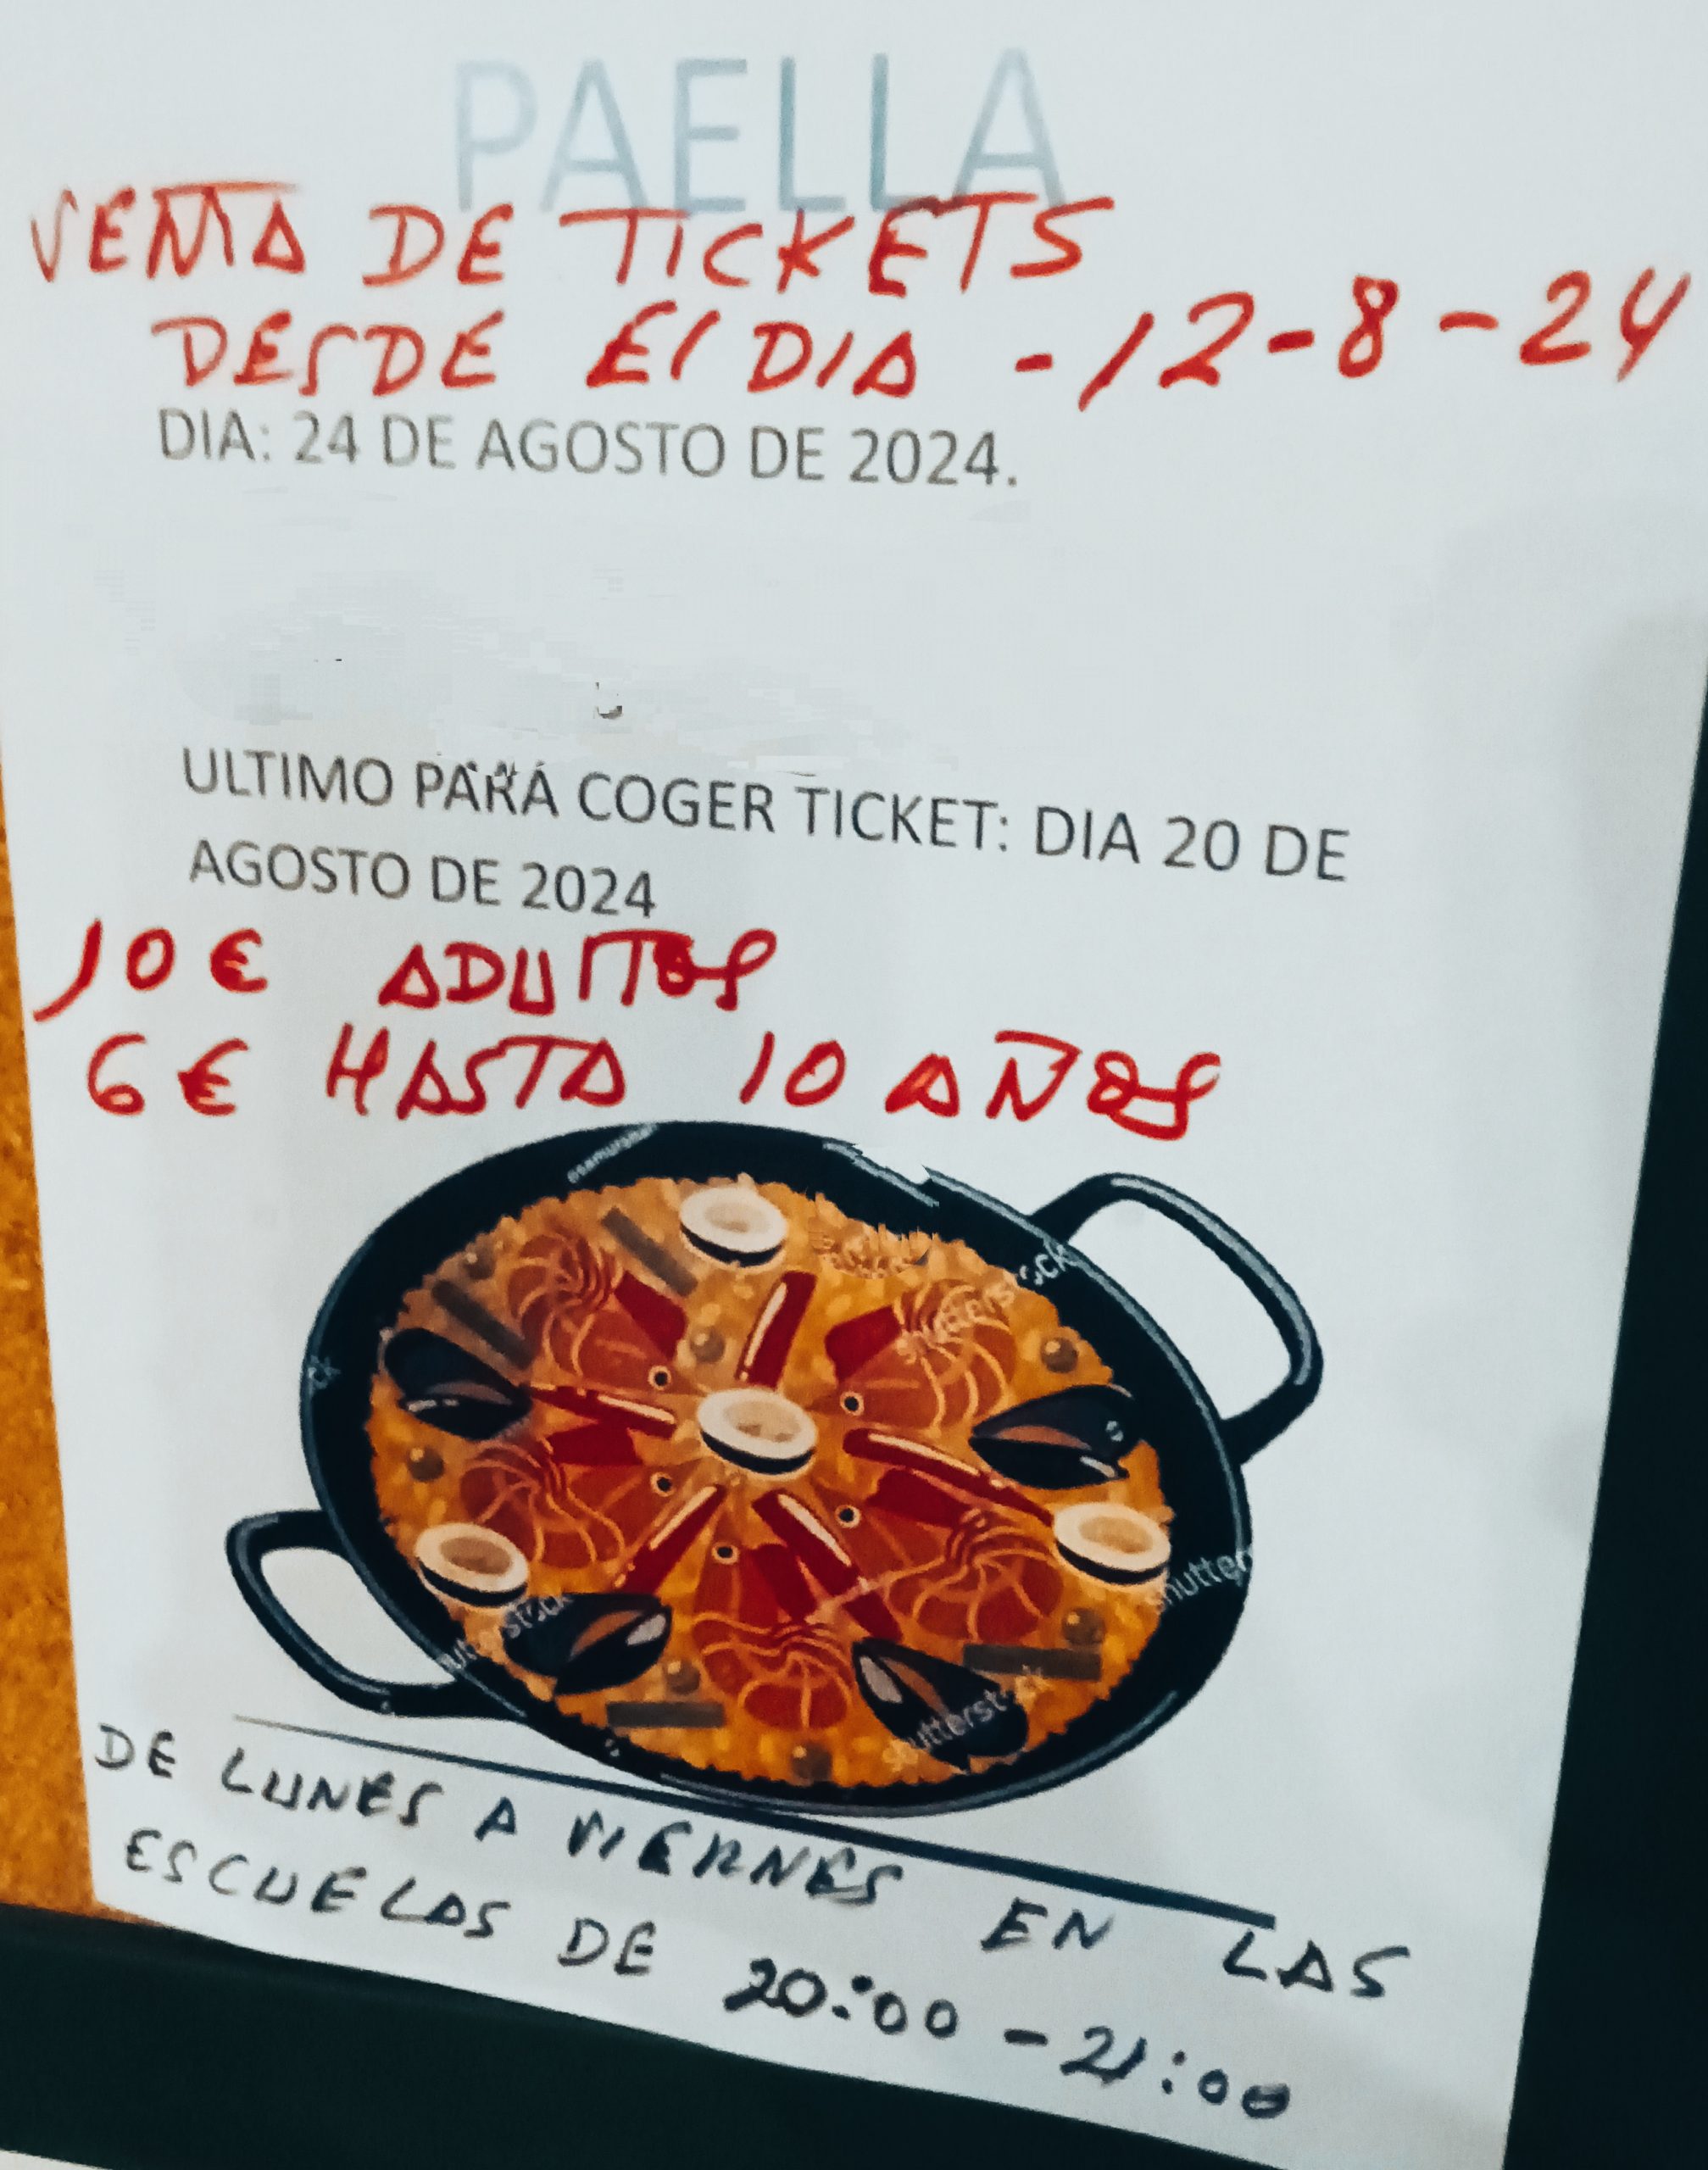 PAELLA
VENTA DE TICKETS
DESDE El DIA - 12-8-24
DIA: 24 DE AGOSTO DE 2024.
ULTIMO PARA COGER TICKET: DIA 20 DE
AGOSTO DE 2024
10€ ADUlTOS
6€ HASTA 10 AÑOS
shutterstock
shutter
shutterstock
DE LUNES A VIERNES EN LAS
ESCUELAS DE 20:00 - 21:00